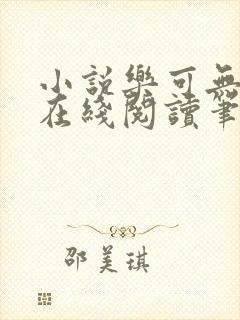 小說樂可無
在綫閱讀筆
邵美琪